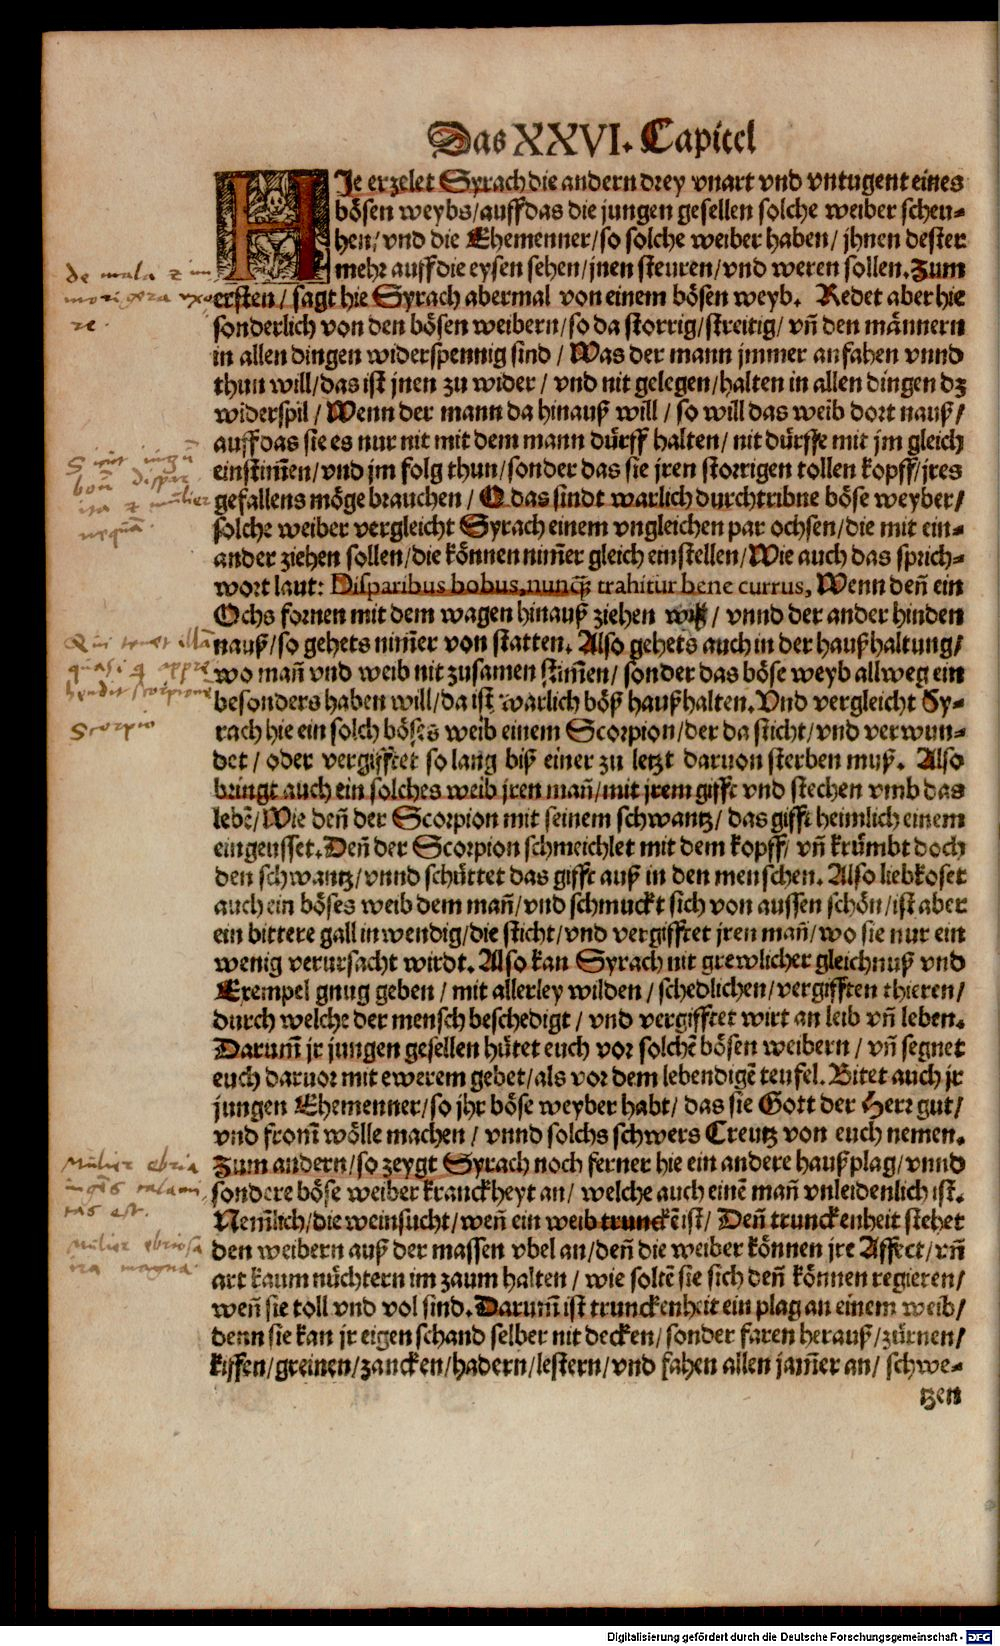 Das XXVI. Capitel
HIe erzelet Syrach die andern drey vnart vnd vntugent eines
bösen weybs/auff das die jungen gesellen solche weiber scheu-
hen/vnd die Ehemenner/so solche weiber haben/jhnen dester
mehr auff die eysen sehen/jnen steuren/vnd weren sollen. Zum
ersten/sagt hie Syrach abermal von einem bösen weyb. Redet aber hie
sonderlich von den bösen weibern/so da storrig/streitig/vñ den männern
in allen dingen widerspennig sind/Was der mann jmmer anfahen vnnd
thun will/das ist jnen zu wider/vnd nit gelegen/halten in allen dingen dz
widerspil/Wenn der mann da hinauß will/so will das weib dort nauß/
auff das sie es nur nit mit dem mann dürff halten/nit dürffe mit jm gleich
einstim̃en/vnd jm folg thun/sonder das sie jren storrigen tollen kopff/jres
gefallens möge brauchen/O das sindt warlich durchtribne böse weyber/
solche weiber vergleicht Syrach einem vngleichen par ochsen/die mit ein-
ander ziehen sollen/die können nim̃er gleich einstellen/Wie auch das sprich-
wort laut: Disparibus bobus, nunq̃ trahitur bene currus, Wenn deñ ein
Ochs fornen mit dem wagen hinauß ziehen will/vnnd der ander hinden
nauß/so gehets nim̃er von statten. Also gehets auch in der haußhaltung/
wo mañ vnd weib nit zusamen stim̃en/sonder das böse weyb allweg ein
besonders haben will/da ist warlich böß haußhalten. Vnd vergleicht Sy-
rach hie ein solch böses weib einem Scorpion/der da sticht/vnd verwun-
det/oder vergifftet so lang biß einer zu letzt daruon sterben muß. Also
bringt auch ein solches weib jren mañ/mit jrem gifft vnd stechen vmb das
lebẽ/Wie deñ der Scorpion mit seinem schwantz/das gifft heimlich einem
eingeusset. Deñ der Scorpion schmeichlet mit dem kopff/vñ krümbt doch
den schwantz/vnnd schüttet das gifft auß in den menschen. Also liebkoset
auch ein böses weib dem mañ/vnd schmuckt sich von aussen schön/ist aber
ein bittere gall inwendig/die sticht/vnd vergifftet jren mañ/wo sie nur ein
wenig verursacht wirdt. Also kan Syrach nit grewlicher gleichnuß vnd
Exempel gnug geben/mit allerley wilden/schedlichen/vergifften thieren/
durch welche der mensch beschedigt/vnd vergifftet wirt an leib vñ leben.
Darum̃ jr jungen gesellen hütet euch vor solchẽ bösen weibern/vñ segnet
euch daruor mit ewerem gebet/als vor dem lebendigẽ teufel. Bitet auch jr
jungen Ehemenner/so jhr böse weyber habt/das sie Gott der Herr gut/
vnd from̃ wölle machen/vnnd solchs schwers Creutz von euch nemen.
Zum andern/so zeygt Syrach noch ferner hie ein andere haußplag/vnnd
sondere böse weiber kranckheyt an/welche auch einẽ mañ vnleidenlich ist.
Nem̃lich/die weinsucht/weñ ein weib trunckẽ ist/Deñ trunckenheit stehet
den weibern auß der massen vbel an/deñ die weiber können jre Affect/vñ
art kaum nüchtern im zaum halten/wie soltẽ sie sich deñ können regieren/
weñ sie toll vnd vol sind. Darum̃ ist trunckenheit ein plag an einem weib/
denn sie kan jr eigen schand selber nit decken/sonder faren herauß/zürnen/
kiffen/greinen/zancken/hadern/lestern/vnd fahen allen jam̃er an/schwe-
tzen
de mala & im
morigera vxo
re.
Sicut iugũ
boũ dispar
ita & mulier
nequã.
Qui tenet illã
quasi q̃ appre
hendit scorpionẽ
Scorpio
Mulier ebria
ingẽs calami
tas est.
Mulier ebriosa
ira magna
Digitalisierung gefördert durch die Deutsche Forschungsgemeinschaft - DFG